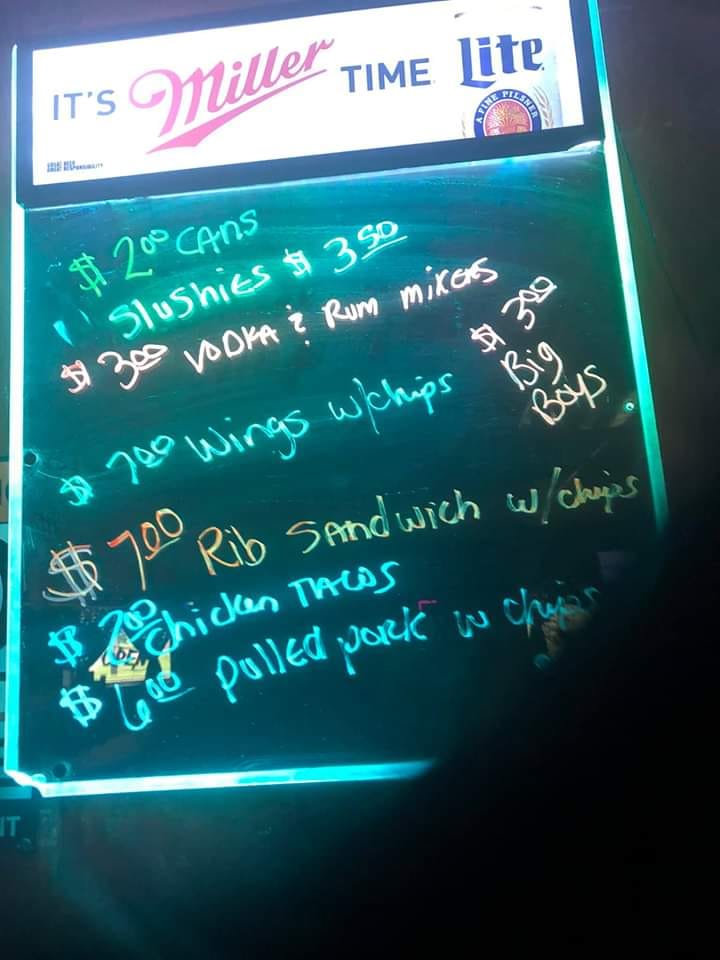 IT'S Miller TIME Lite
A FINE PILSNER
GREAT BEER
GREAT RESPONSIBILITY
$ 2.00 CANS
" Slushies $ 3.50
$ 3.00 VODKA & Rum mixers
$ 3.00
Big
Boys
$ 7.00 Wings w/chips
$ 7.00 Rib SANdwich w/chips
$ 2.00 Chicken TACOS
OPEN
$ 6.00 pulled pork w chips
IT